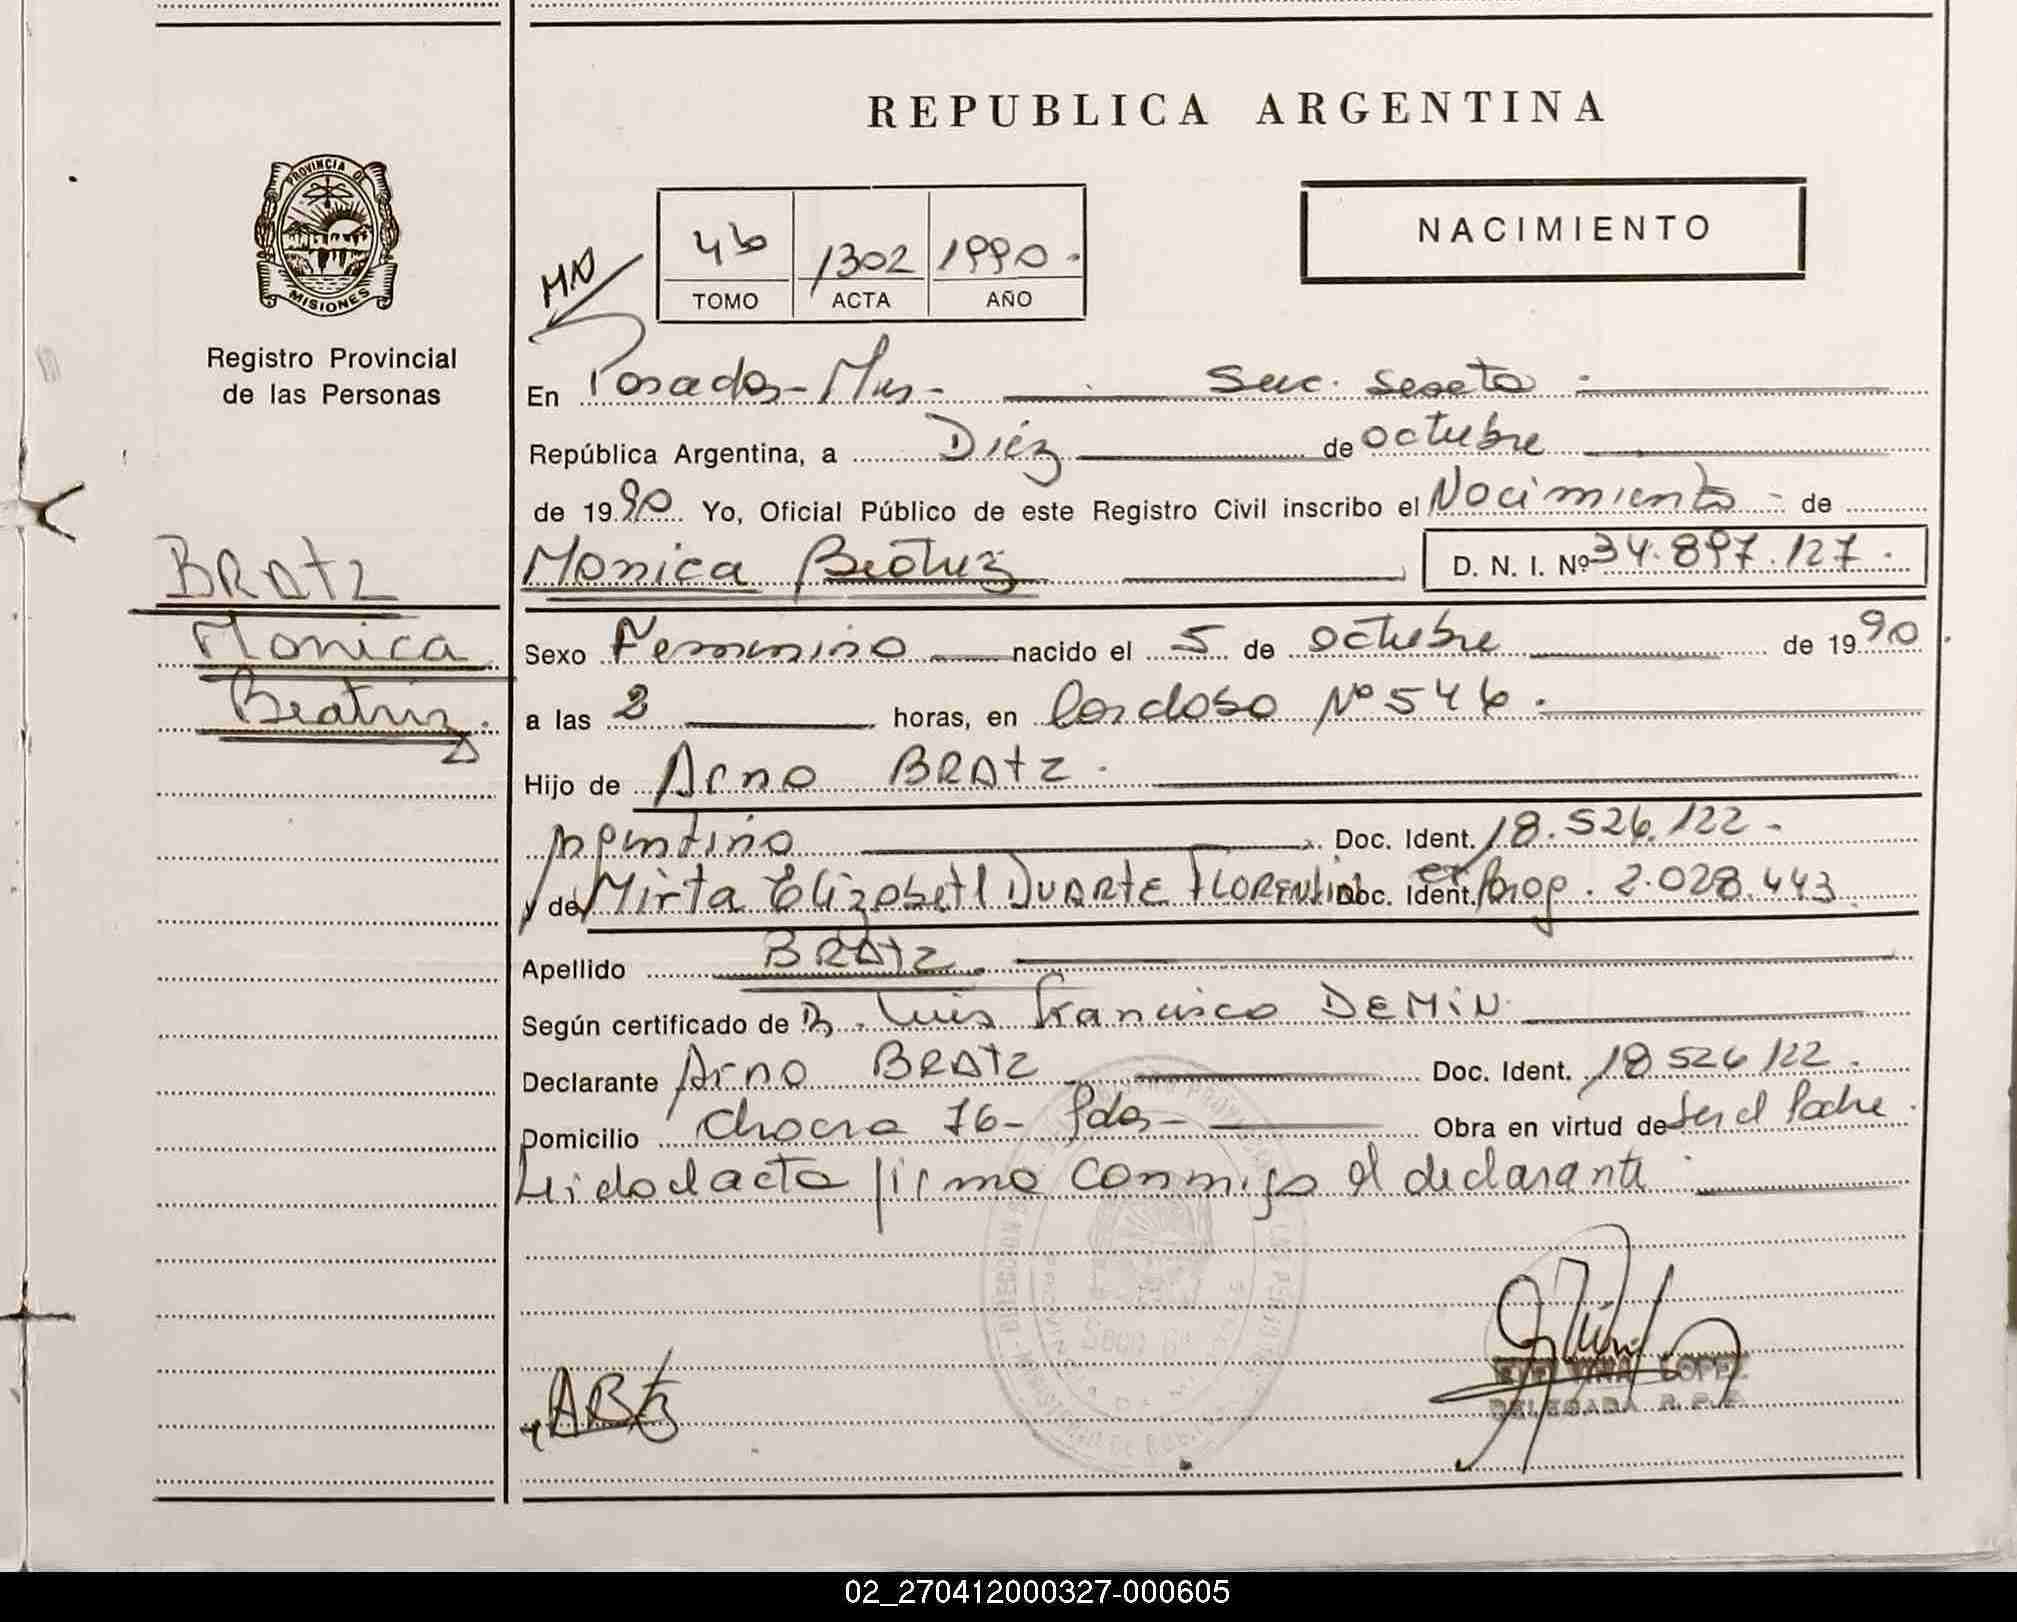 REPUBLICA ARGENTINA
PROVINCIA DE
MISIONES
Registro Provincial
de las Personas
4b
1302
1990.
TOMO
ACTA
AÑO
NACIMIENTO
En Posadas-Mnes- Secc. Sexta
República Argentina, a Diéz de octubre
de 1990 Yo, Oficial Público de este Registro Civil inscribo el Nacimiento - de
BRATZ
Monica
Beatriz.
Monica Beatriz D. N. I. Nº 34.897.127.
Sexo Femenino nacido el 5 de octubre de 1990.
a las 2 horas, en Cardoso Nº 546.
Hijo de Arno BRATZ.
Argentino Doc. Ident. 18.526.122-
y de Mirta Elizabeth DUARTE FLORENTIN Doc. Ident. 2.028.443
Apellido BRATZ.
Según certificado de D. Luis Francisco DEMIN
Declarante Arno BRATZ Doc. Ident. 18526122.
Domicilio Chacra 76- Pdas- Obra en virtud de Ser el Padre.
Leido el acta firma conmigo el declarante
LOPEZ
DELEGADA R. P. P.
02_270412000327-000605